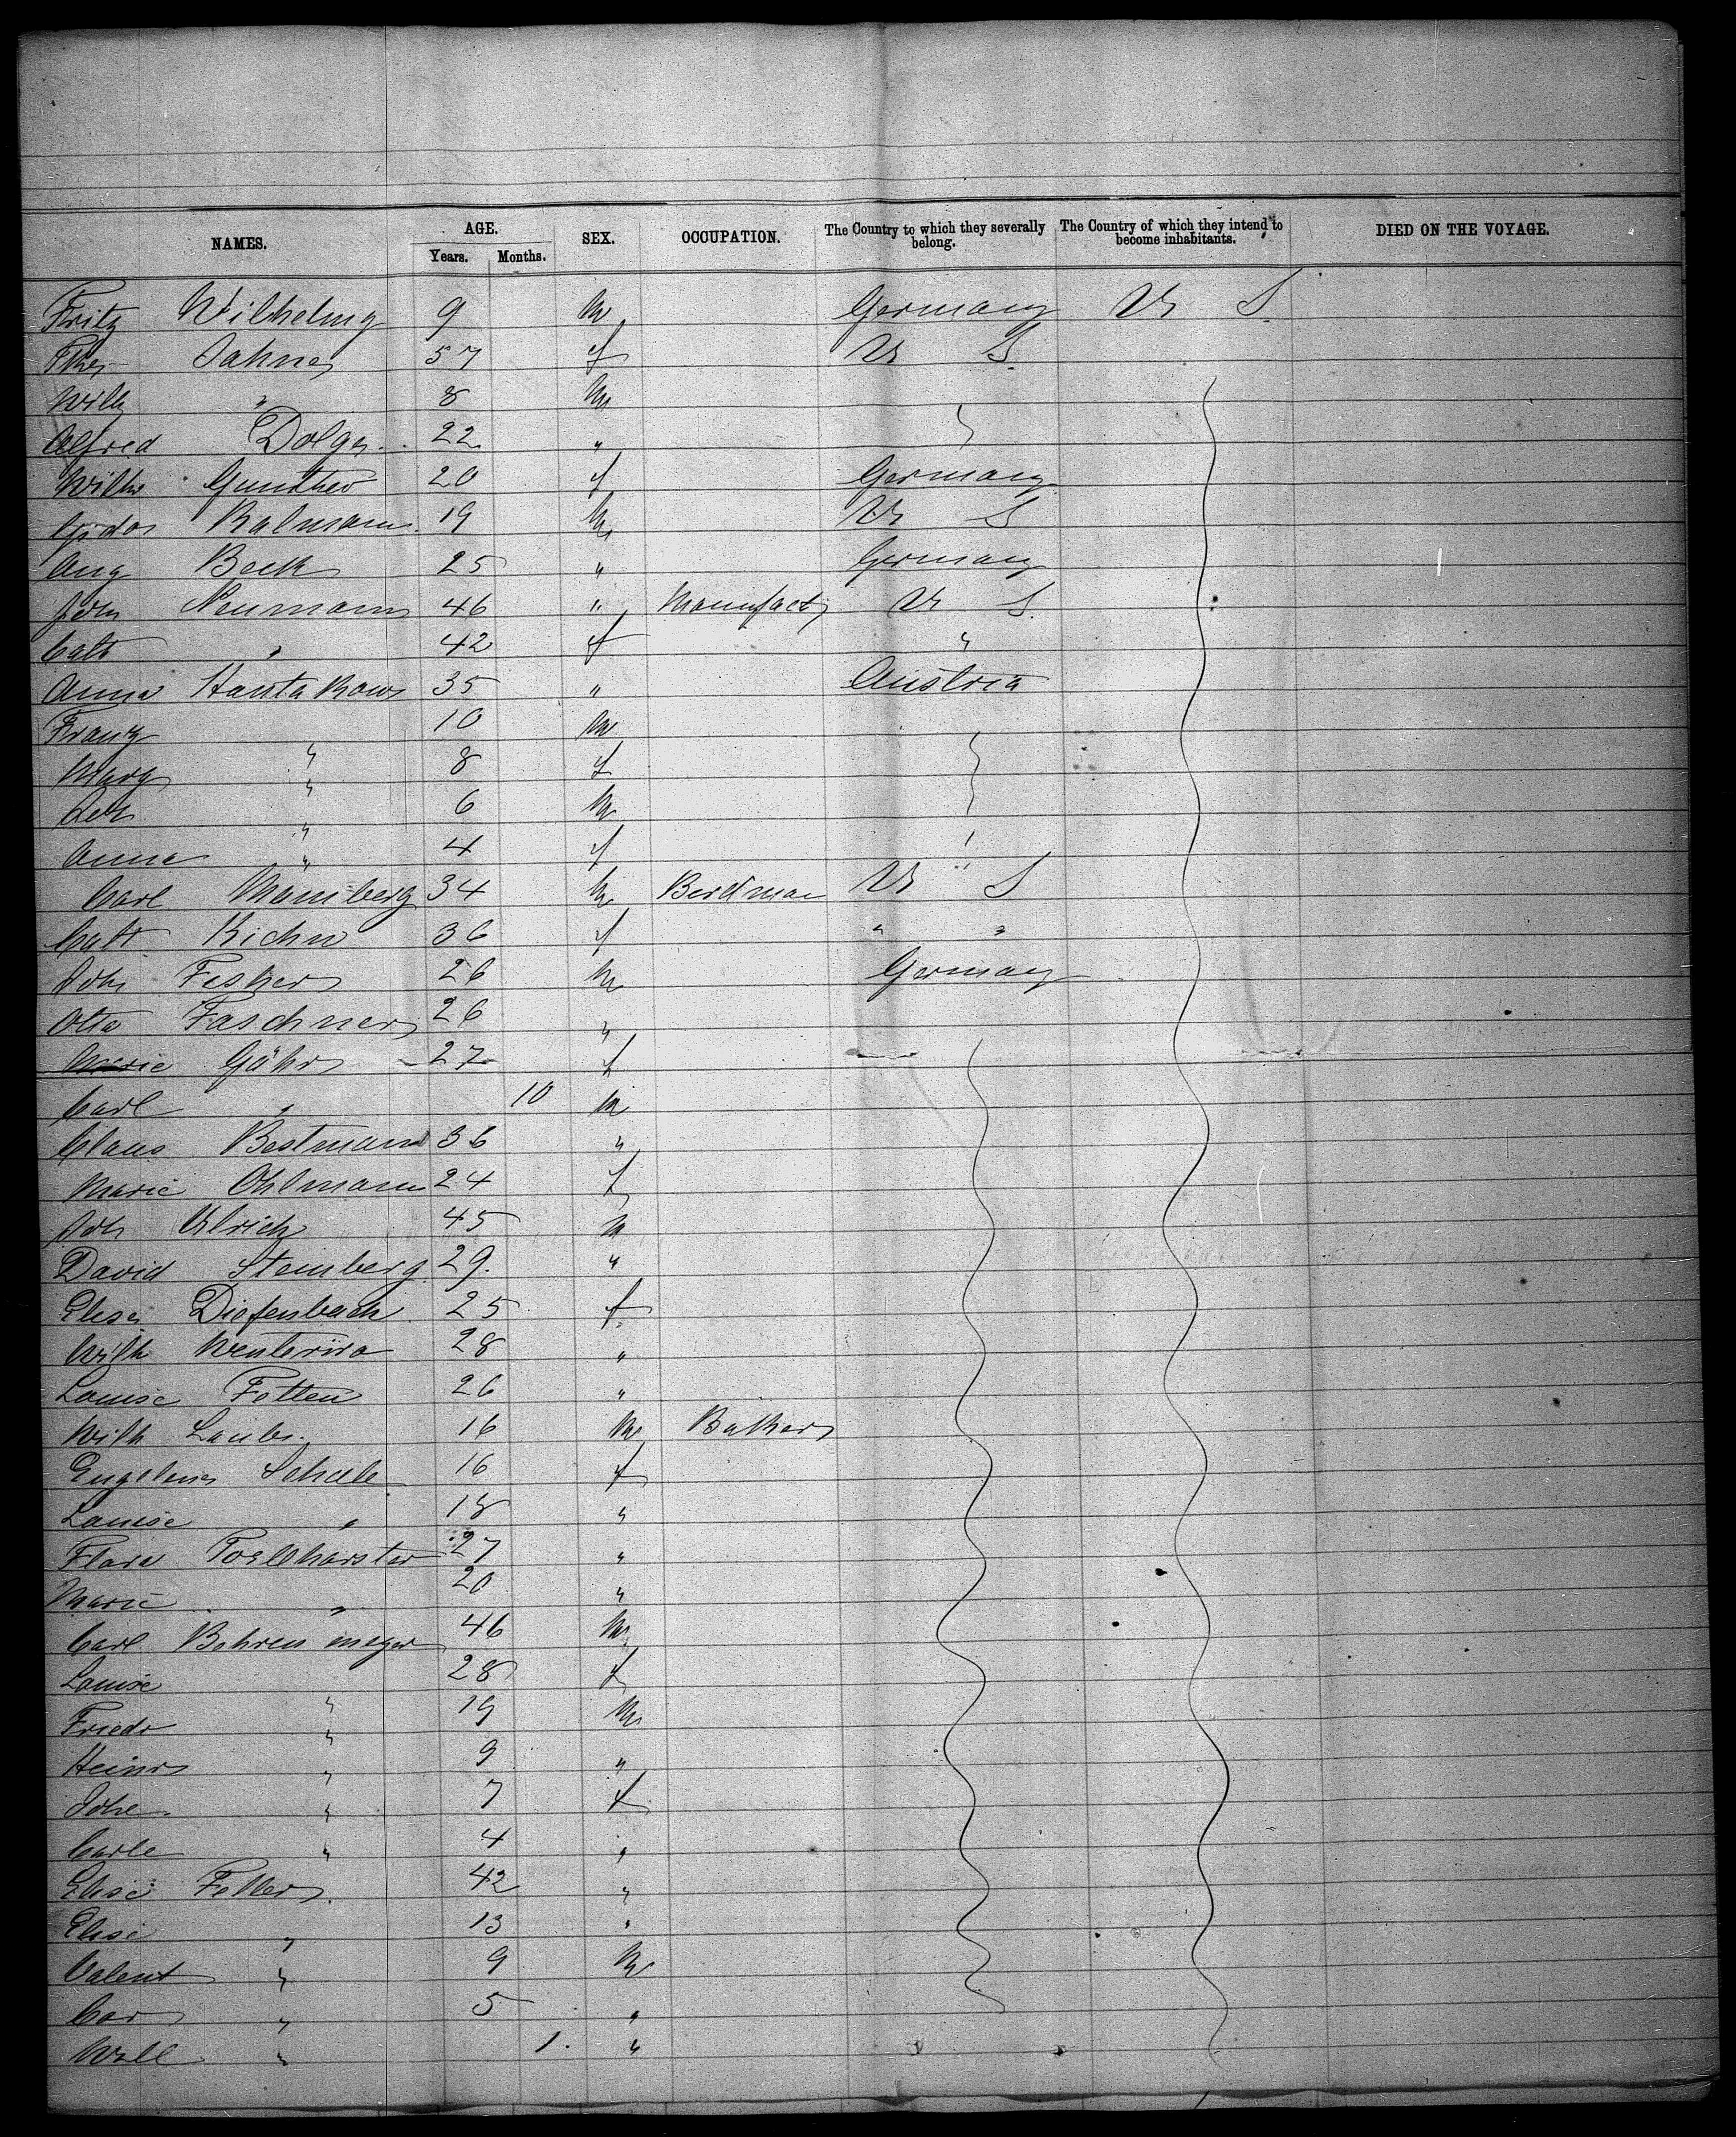 NAMES. AGE. SEX. OCCUPATION. The Country to which they severally belong. The Country of which they intend to become inhabitants. DIED ON THE VOYAGE.
Years. Months.
Fritz Wilhelmy 9 m Germany U S
57 f U S
Wilh " 8 m
Alfred Dolge 22 "
Wilhe Gunther 20 f Germany
19 m U S
Aug Beck 25 " Germany
John Neumann 46 " Manufact U S
Cath " 42 f "
Anna 35 " Austria
Franz " 10 m
Mary " 8 f
" 6 m
Anna " 4 f
Carl Mamberg 34 m U S
Cath 36 f " "
Joh Fesher 26 m Germany
Otto Faschner 26 "
Marie Gähr 27 f
Carl " 10 m
Claus Bestmann 36 "
Marie Ohlmann 24 f
Joh Ulrich 45 m
David Steinberg 29. "
Elise Diefenbach 25 f
Wilh 28 "
Louise Fetten 26 "
Wilh 16 m Baker
16 f
Louise " 18 "
27 "
Marie " 20 "
Carl Behrenmeyer 46 m
Louise " 28 f
Friedr " 19 m
Heinr " 9 "
Johe " 7 f
Carle " 4 "
Elise Feller 42 "
Elise " 13 "
Valent " 9 m
Car " 5 "
" 1. "